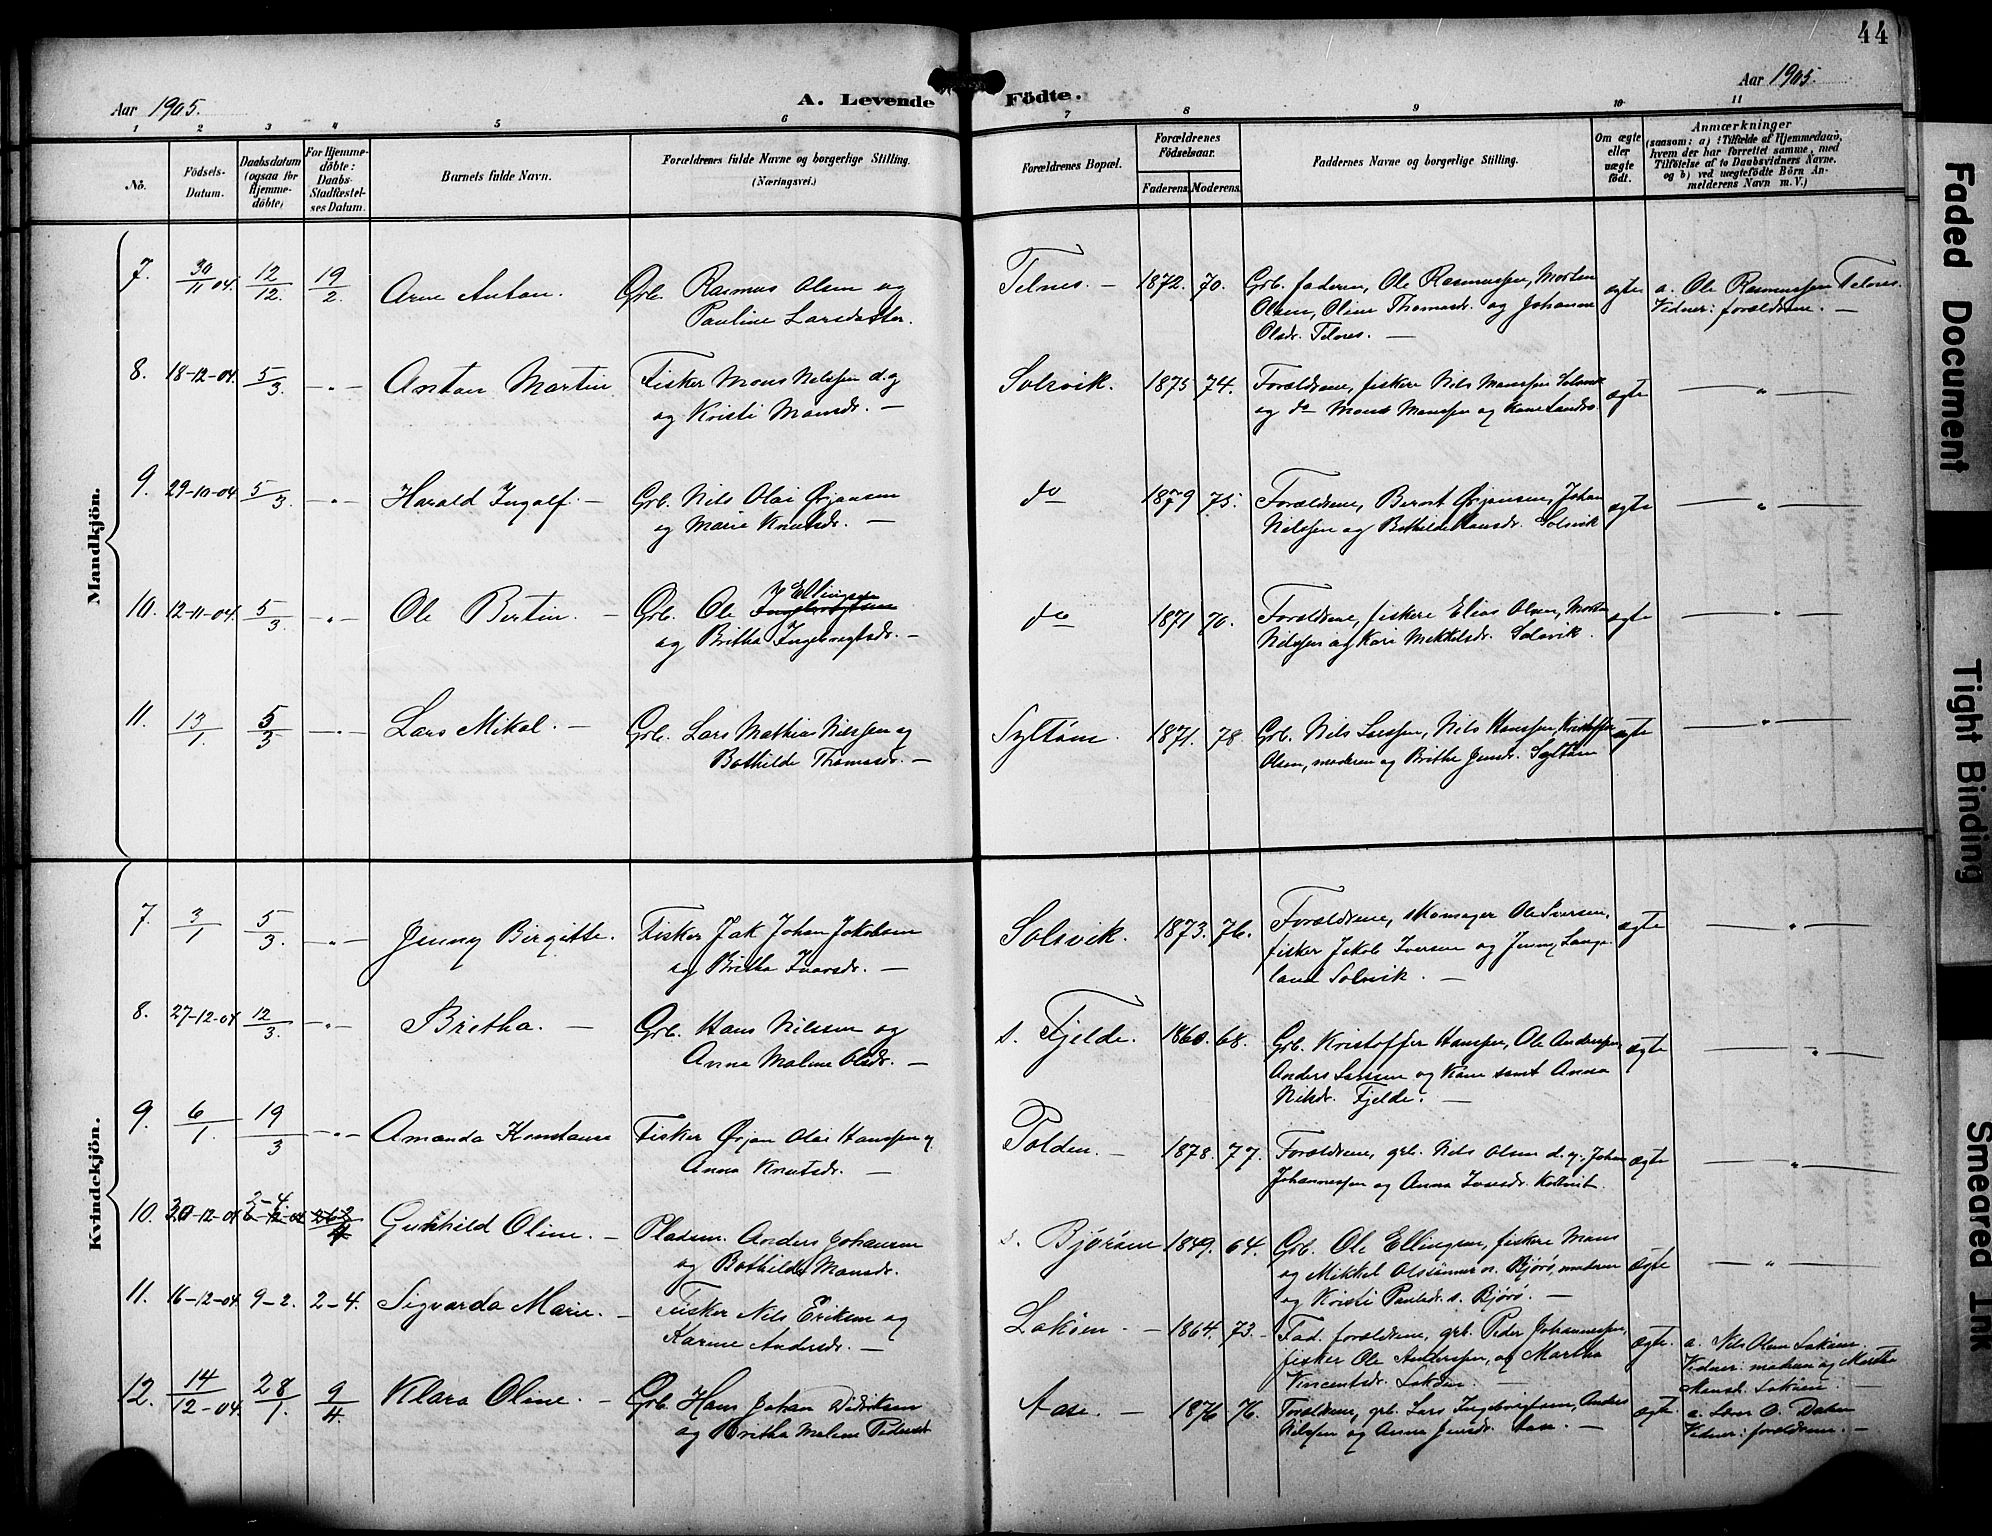 44
Aar 1905.
A. Levende Födte.
Aar 1905.
1 2 3 4 5 6 7 8 9 10 11
No.
Födsels-Datum.
Daabsdatum (ogsaa for Hjemme-döbte)
For Hjemme-döbte: Daabs-Stadfæstel-ses Datum.
Barnets fulde Navn.
Forældrenes fulde Navne og borgerlige Stilling.
(Næringsvei.)
Forældrenes Bopæl.
Forældrenes Födselsaar.
Faderens. Moderens.
Faddernes Navne og borgerlige Stilling.
Om ægte eller uægte födt.
Anmærkninger
(saasom: a) i Tilfælde af Hjemmedaab,
hvem der har forrettet samme, med
Tilföielse af to Daabsvidners Navne,
og b) ved uægtefödte Börn An-
melderens Navn m. V.)
Mandkjön.
7. 30/11 04. 12/12. 19/2. Arne Anton. Grb. Rasmus Olsen og
Pauline Larsdatter.
Telnes. — 1872. 70. Grb. faderen, Ole Rasmussen, Morten
Olsen, Oline Thomasdr. og Johanne
Olsdr. Telnes. —
ægte a. Ole Rasmussen Telnes.
Vidner: forældrene. —
8. 18-12-04. 5/3. — " — Anton Martin Fisker Mons Nilssen d.y
og Kristi Monsdr. —
Solsvik. 1875 74. Forældrene, fiskere Nils Monssen Solsvik
og do Mons Monssen og
ægte — " —
9. 29-10-04 5/3. — " — Harald Ingolf. — Grb. Nils Olai Ørjansen
og Marie Knutsdr. —
do 1879 75. Forældrene, Berent Ørjansen, Johan
Nilssen og Bothilde Hansdr. Solsvik
ægte — " —
10. 12-11-04. 5/3. — " — Ole Bertin. — Grb. Ole Ellingsen
og Britha Ingebrigtsdr. —
do 1871 70. Forældrene, fiskere Elias Olsen, Morten
Nilssen og Kari Mikkelsdr. Solsvik. —
ægte — " —
11. 13/1. 5/3 — " — Lars Mikal. — Grb. Lars Mathias Nilssen og
Bothilde Thomasdr. —
Syltøen. 1871. 78. Grb. Nils Larssen, Nils Hanssen, Kristoffer
Olsen, moderen og Brithe Jensdr. Syltøen
ægte — " —
Kvindekjön.
7. 3/1 5/3. — " — Jenny Birgitte. Fisker Jak Johan Jakobsen
og Britha Ivarsdr. —
Solsvik. 1873. 76. Forældrene, skomager Ole Iversen,
fisker Jakob Iversen og Jenny Lange-
land Solsvik. —
ægte — " —
8. 27-12-04 12/3. — " — Britha. — Grb. Hans Nilssen og
Anna Malene Olsdr. —
s. Fjelde. 1860. 68. Grb. Kristoffer Hanssen, Ole Anderssen,
Anders Larssen og Kone samt Anna
Nilsdr. Fjelde. —
ægte — " —
9. 6/1. 19/3 — " — Amanda Konstanse Fisker Ørjan Olai Hanssen og
Anna Knutsdr. —
Polden. — 1878. 77. Forældrene, grb. Nils Olsen d.y., Johan
Johannessen og Anna Iversdr. Koltveit.
ægte — " —
10. 30-12-04 2-4. Gunhild Oline. — Pladsm. Anders Johansen
og Bothilde Monsdr.
s. Bjørøen 1849. 64. Grb. Ole Ellingsen, fiskere Mons
og Mikkel Olssønner n. Bjørø, moderen
og Kristi Paulsdr. s. Bjørø. —
ægte — " —
11. 16-12-04. 9-2. 2-4. Sigvarda Marie. — Fisker Nils Eriksen og
Karine Andersdr. —
Lokøen. — 1864. 73. — Fad. forældrene, grb. Peder Johannessen,
fisker Ole Anderssen, og Martha
Vincentsdr. Lokøen. —
ægte. a. Nils Olsen Lokøen,
Vidner: moderen og Martha
Lokøen. —
12. 14/12-04. 28/1. 9/4 Klara Oline. — Grb. Hans Johan Didriksen
og Britha Malene Pedersdr
Aase. — 1876 76. Forældrene, grb. Lars Ingebrigtsen, Anders
Nilssen og Anna Jensdr. Aase. —
ægte. a. O. Dalen
Vidner: forældrene. —
Faded Document
Tight Binding
Smeared Ink